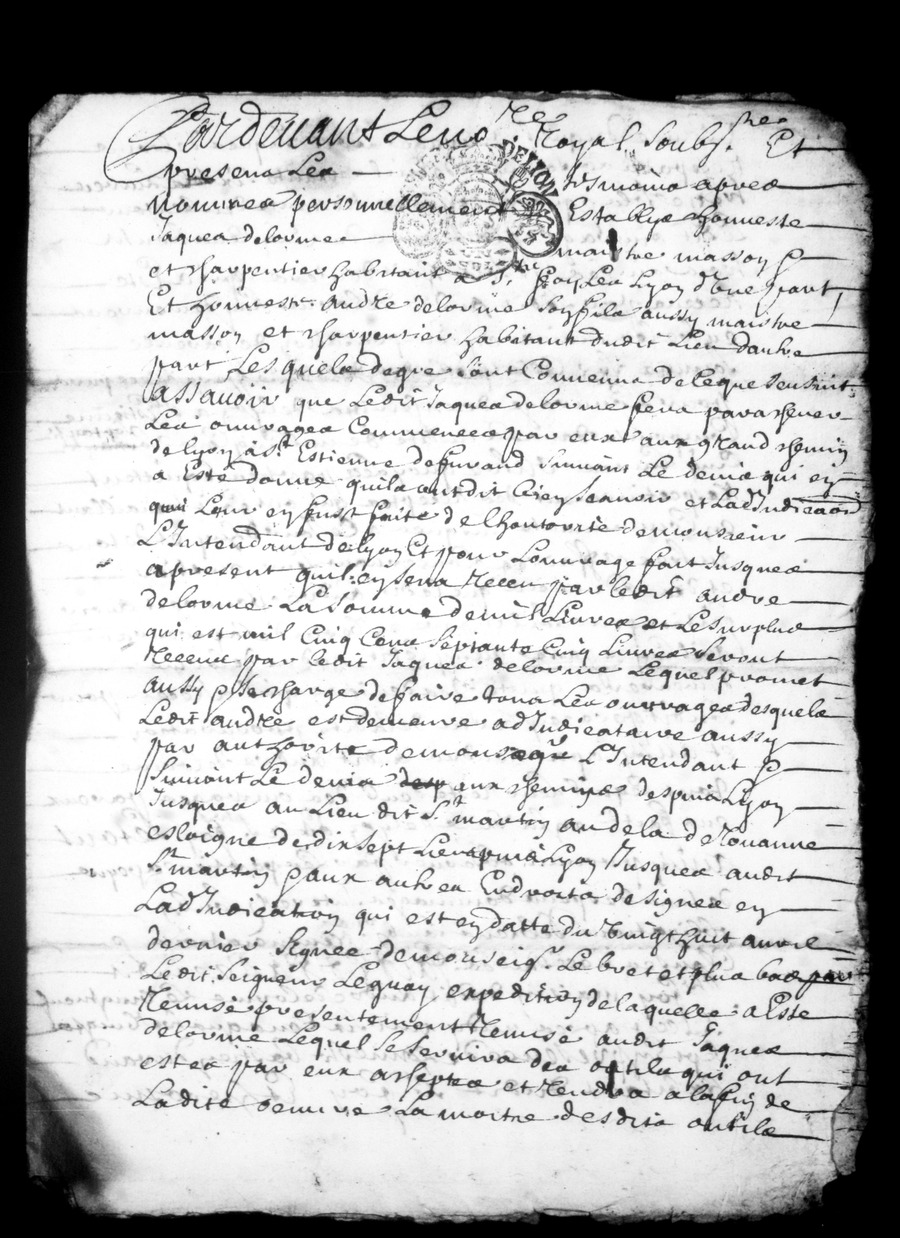 Pardevant Le no.re Royal soubs.ne Et
presens Les tesmoins apres
nommes personnellement Establys honneste
Jaques delorme maistre masson &
et charpentier habitant a St. Lés Lyon d'une part
Et honneste andre delorme son fils aussy maistre
masson et charpentier habitant dudit Lieu dautre
part Lesquels de gre sont Convenus de le que sensuit
assavoir que Ledit Jaques delorme fera parachever
Les ouvrages Commences par eux aux grand chemin
de Lyon à St Estienne de furand suivant Le devis qui en
a Esté donné quils ont dit bien scavoir et Ladjudication
qui Leur en fust faite de Lhautorite de monsieur
L'Intendant de Lyon Et pour Louvrage fait Jusques
apresent quil en sera Receu par ledit andre
delorme La somme de mil Livres et Le surplus
qui est mil Cinq Cens septante Cinq Livres seront
Receus par ledit Jaques delorme Lequel promet
aussy & se charge de faire tous Les ouvrages desquels
Ledit andre est demeure adjudicataire aussy
par authorite de monseigr L'Intendant &
suivant Le devis aux chemins despuis Lyon
Jusques au Lieu dit St martin au dela de Rouanne
esloigne de dix sept Lieues despuis Lyon Jusques audit
St martin & aux autres Endroits designes en
Ladjudication qui est en datte du vingt huit avril
dernier signee de monseigr. Le bret et plus bas par
Ledit seigneur Leguay expedition de laquelle a Esté
Remise presentement Remise audit Jaques
delorme Lequel se servira des outils qui ont
estes par eux acheptes et Rendra a la fin de
Ladite oeuvre La moitie desdits outils